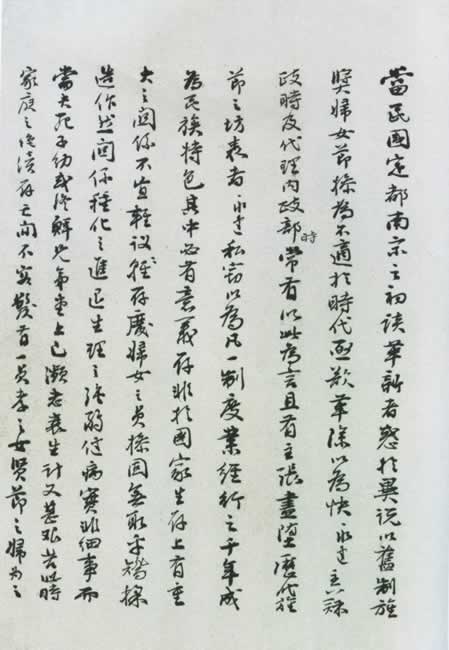 當民國定都南京之初談革新者惑於異說以舊制旌
獎婦女節操為不適於時代亟欲革除以為快永建主蘇
政時及代理內政部時常有以此為言且有主張盡墮歷代旌
節之坊表者永建私竊以為凡一制度業經行之千年成
為民族特色其中必有意義存非於國家生存上有重
大之關係不宜輕議存廢婦女之貞操固無取乎矯揉
造作然關係種化之進退生理之強弱健病實非細事而
當夫死子幼或終鮮兄弟堂上已瀕老衰生計又甚艱苦此時
家庭之繼續存亡間不容髮有一貞孝之女賢節之婦為之